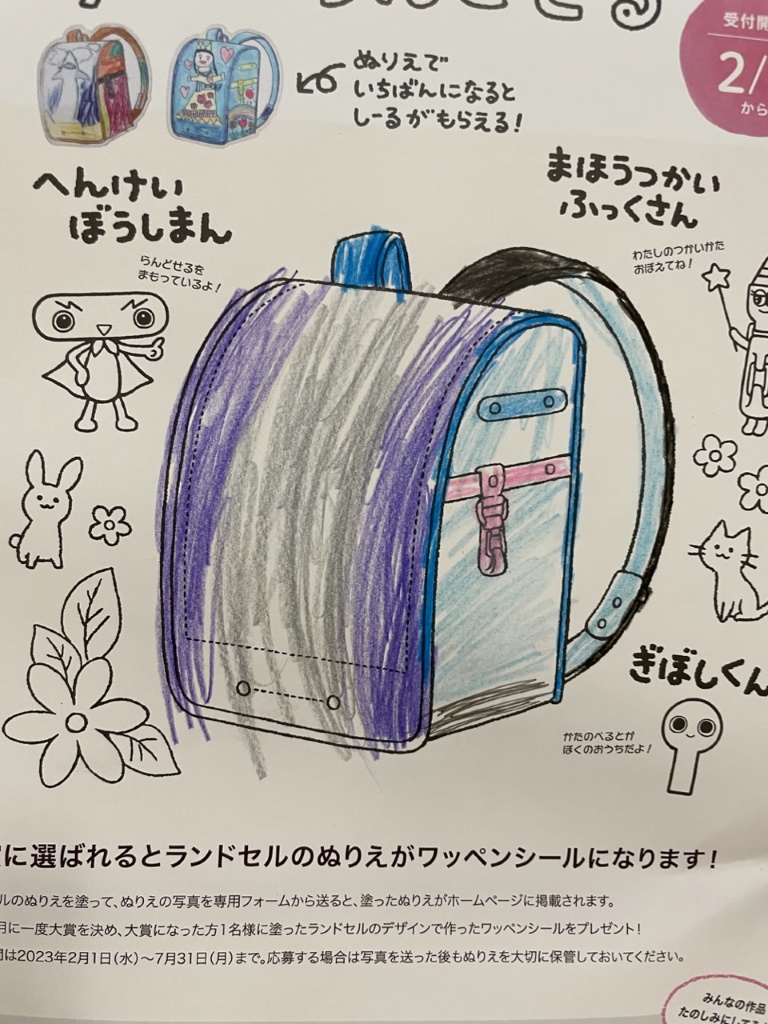 受付開
2/
から
ぬりえで
いちばんになると
しーるがもらえる!
へんけい
ぼうしまん
らんどせるを
まもっているよ!
まほうつかい
ふっくさん
わたしのつかいかた
おぼえてね!
ぎぼしくん
かたのべるとが
ぼくのおうちだよ!
に選ばれるとランドセルのぬりえがワッペンシールになります!
ルのぬりえを塗って、ぬりえの写真を専用フォームから送ると、塗ったぬりえがホームページに掲載されます。
月に一度大賞を決め、大賞になった方1名様に塗ったランドセルのデザインで作ったワッペンシールをプレゼント!
間は2023年2月1日(水)〜7月31日(月)まで。応募する場合は写真を送った後もぬりえを大切に保管しておいてください。
みんなの作品
たのしみにしてる